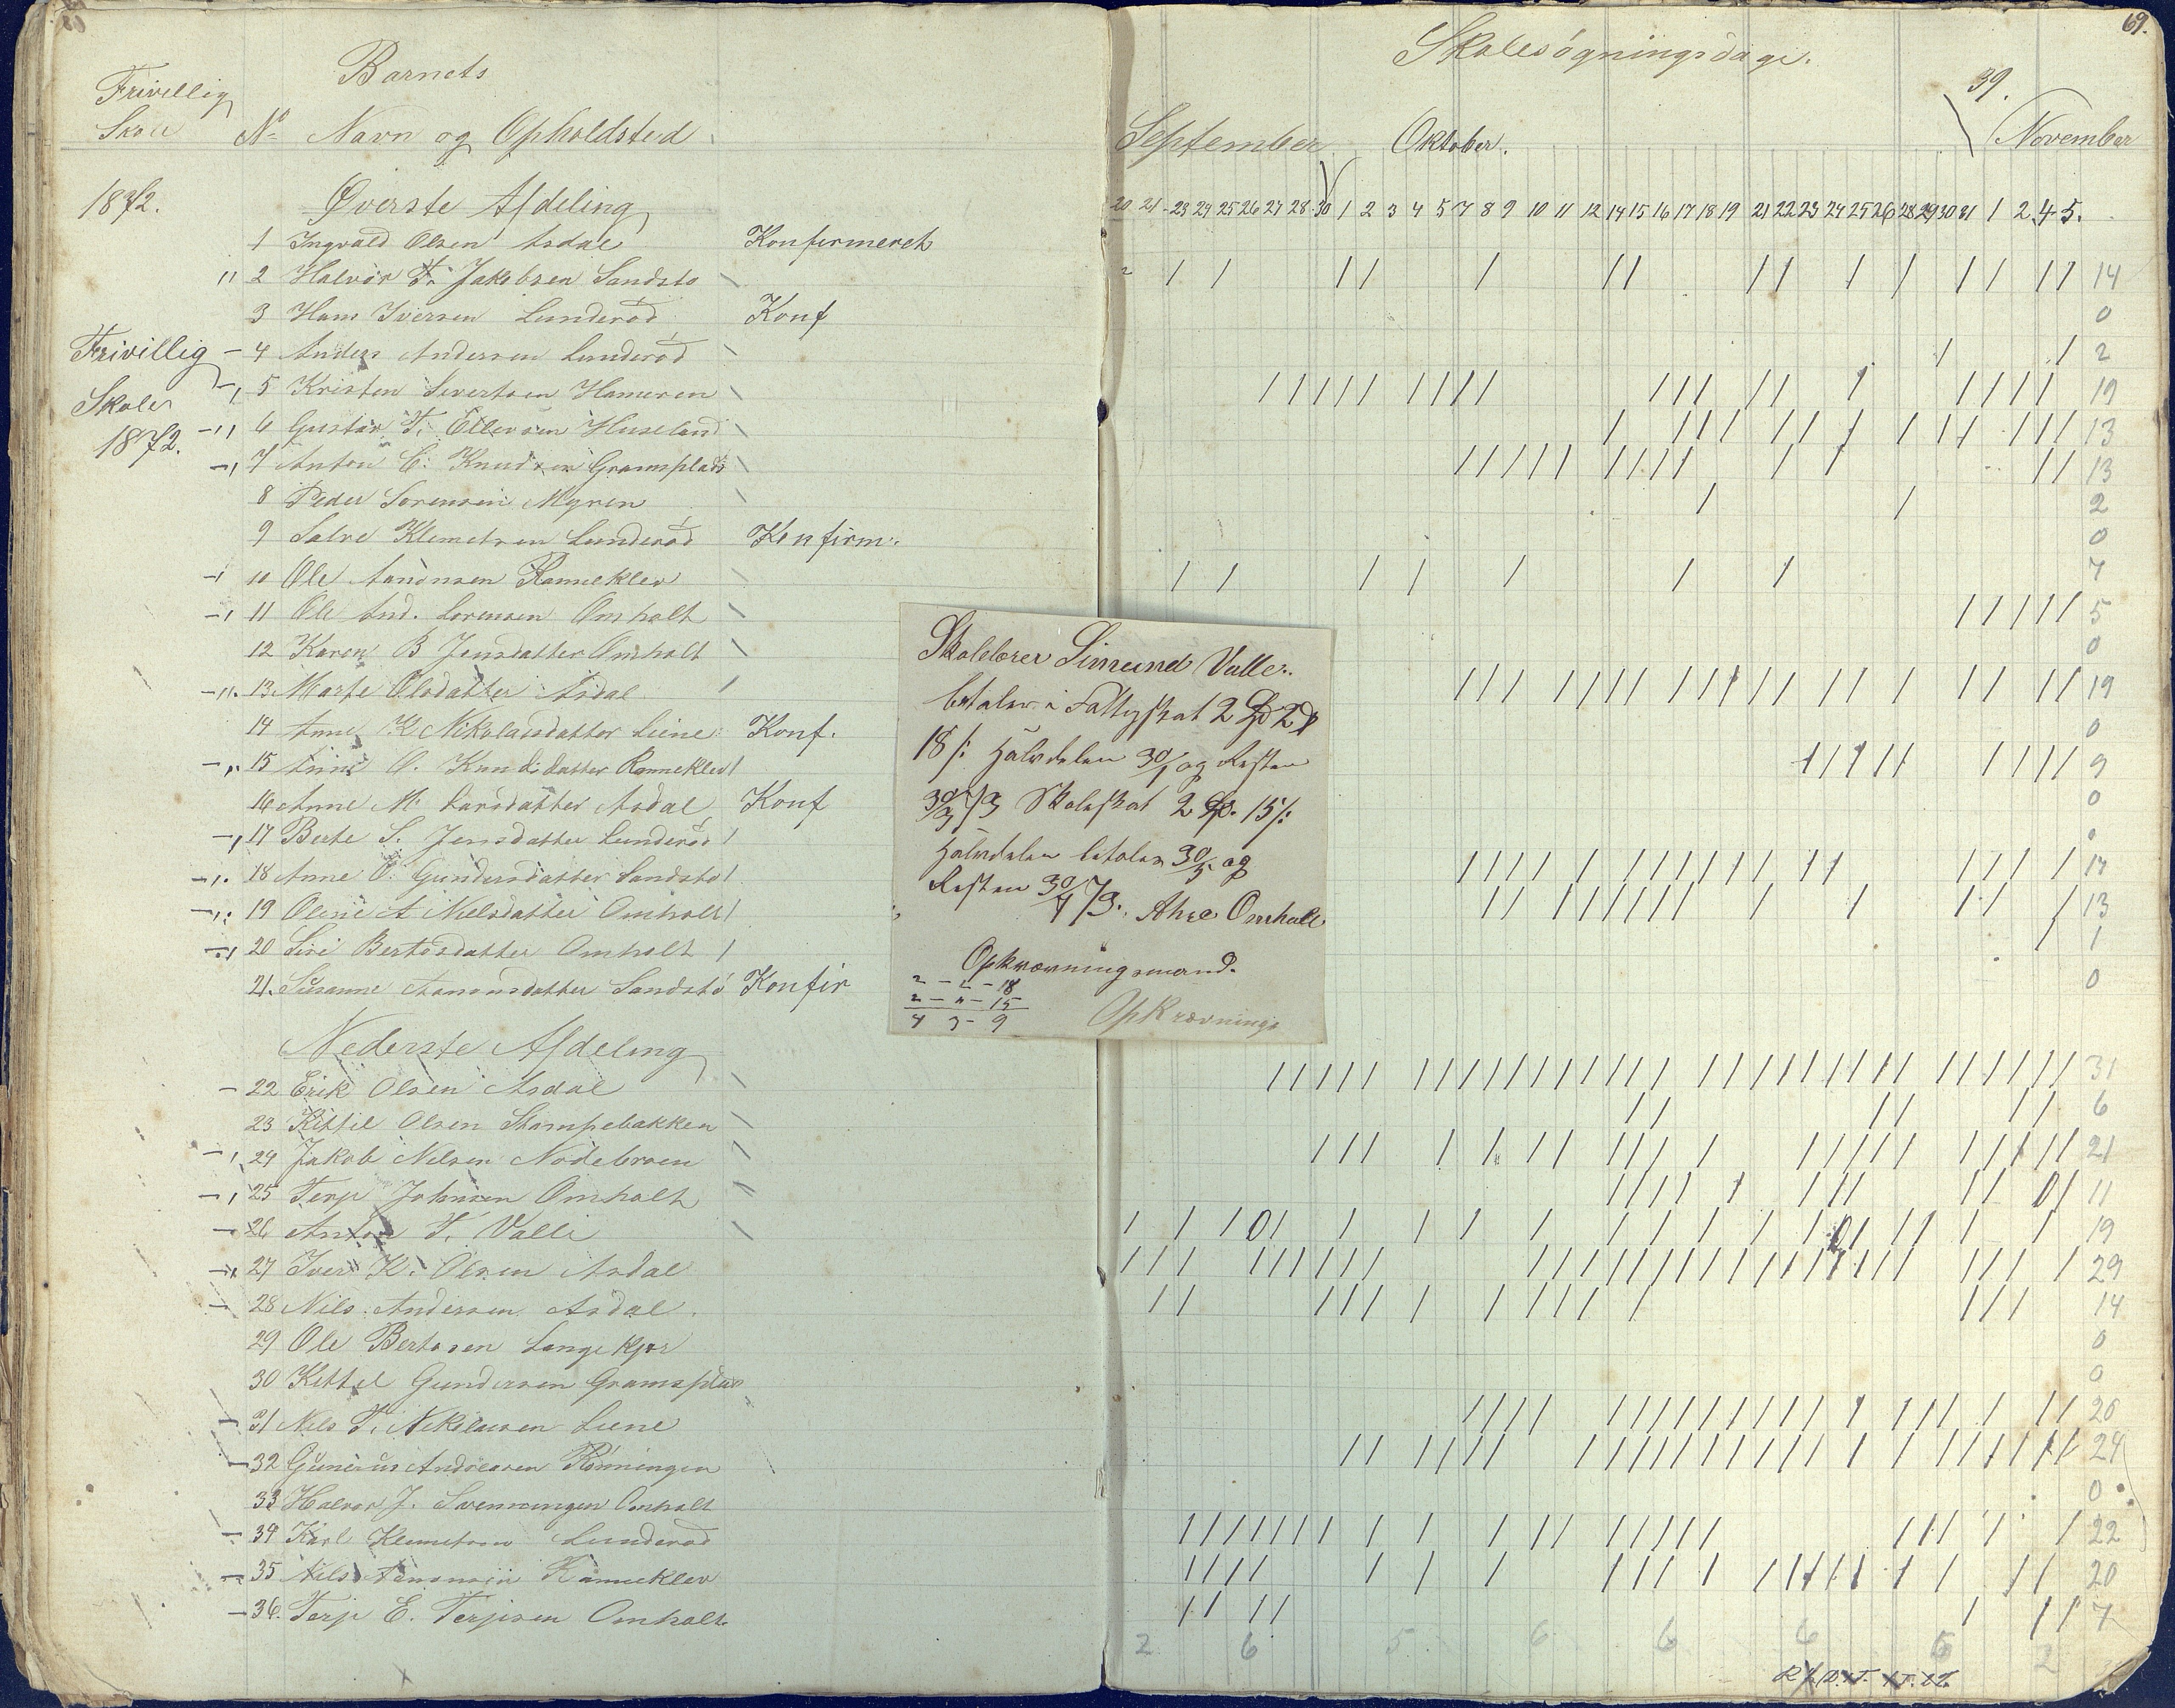 Frivillig
Skole
1872.
Frivillig
Skole
1872.
Barnets
No Navn og Opholdsted
Øverste Afdeling
1 Ingvald Olsen Asdal Konfirmeret
2 Halvor T. Jakobsen Sandstø
3 Hans Iversen Lunderød Konf
4 Anders Andersen Lunderød
5 Kristen Sivertsen Hameren
6 Gustav T. Ellevsen Huseland
7 Anton C. Knudsen Gramsplads
8 Peder Sørensen Myren
9 Salve Klemetsen Lunderød Konfirm.
10 Ole Aanonsen Ranneklev
11 Ole And. Sorensen Omholt
12 Karen B Jensdatter Omholt
13 Marte Olsdatter Asdal
14 Anne K Nikolaisdatter Liene Konf.
15 Anne O. Knudsdatter Ranneklev
16 Anne M. Larsdatter Asdal Konf
17 Berte S. Jensdatter Lunderød
18 Anne O. Gundersdatter Sandstø
19 Oline A Nielsdatter Omholt
20 Siri Bertosdatter Omholt
21. Susanne Aanonsdatter Sandstø Konfir
Nederste Afdeling
22 Erik Olsen Asdal
23 Kittil Olsen Stampebakken
24 Jakob Nilsen Nødebroen
25 Terje Johnsen Omholt
26 Anton T. Valle
27 Iver K. Olsen Asdal
28 Nils Andersen Asdal.
29 Ole Bertosen Langekjær
30 Kittil Gundersen Gramsplas
31 Nils T. Nikolaisen Liene
32 Gunerius Andreasen Rønningen
33 Halvor J. Svenningen Omholt
34 Karl Klemetsen Lunderød
35 Nils Aanonsen Ranneklev
36. Terje E. Terjesen Omholt
69.
Skolesøgningsdage.
39.
September Oktober. November
20 21 23 24 25 26 27 28 30 1 2 3 4 5 7 8 9 10 11 12 14 15 16 17 18 19 21 22 23 24 25 26 28 29 30 31 1 2 4 5.
14
0
2
19
13
13
2
0
7
5
0
19
0
9
0
0
17
13
1
0
31
6
21
11
19
29
14
0
0
20
24
0
22
20
7
2 6 5 6 6 6 6 2
Skolelærer Simund Valle
betaler i Fattigskat 2 Spd 2
18 /: Halvdelen 30/1 og Resten
30/3 73 Skoleskat 2 Sp. 15/:
Halvdelen betales 30/5 og
Resten 30/7 73. Ahre Omholt
Opkrævningsmand.
2 - 2 - 18
2 - " - 15
4 3 - 9
Opkrævnings